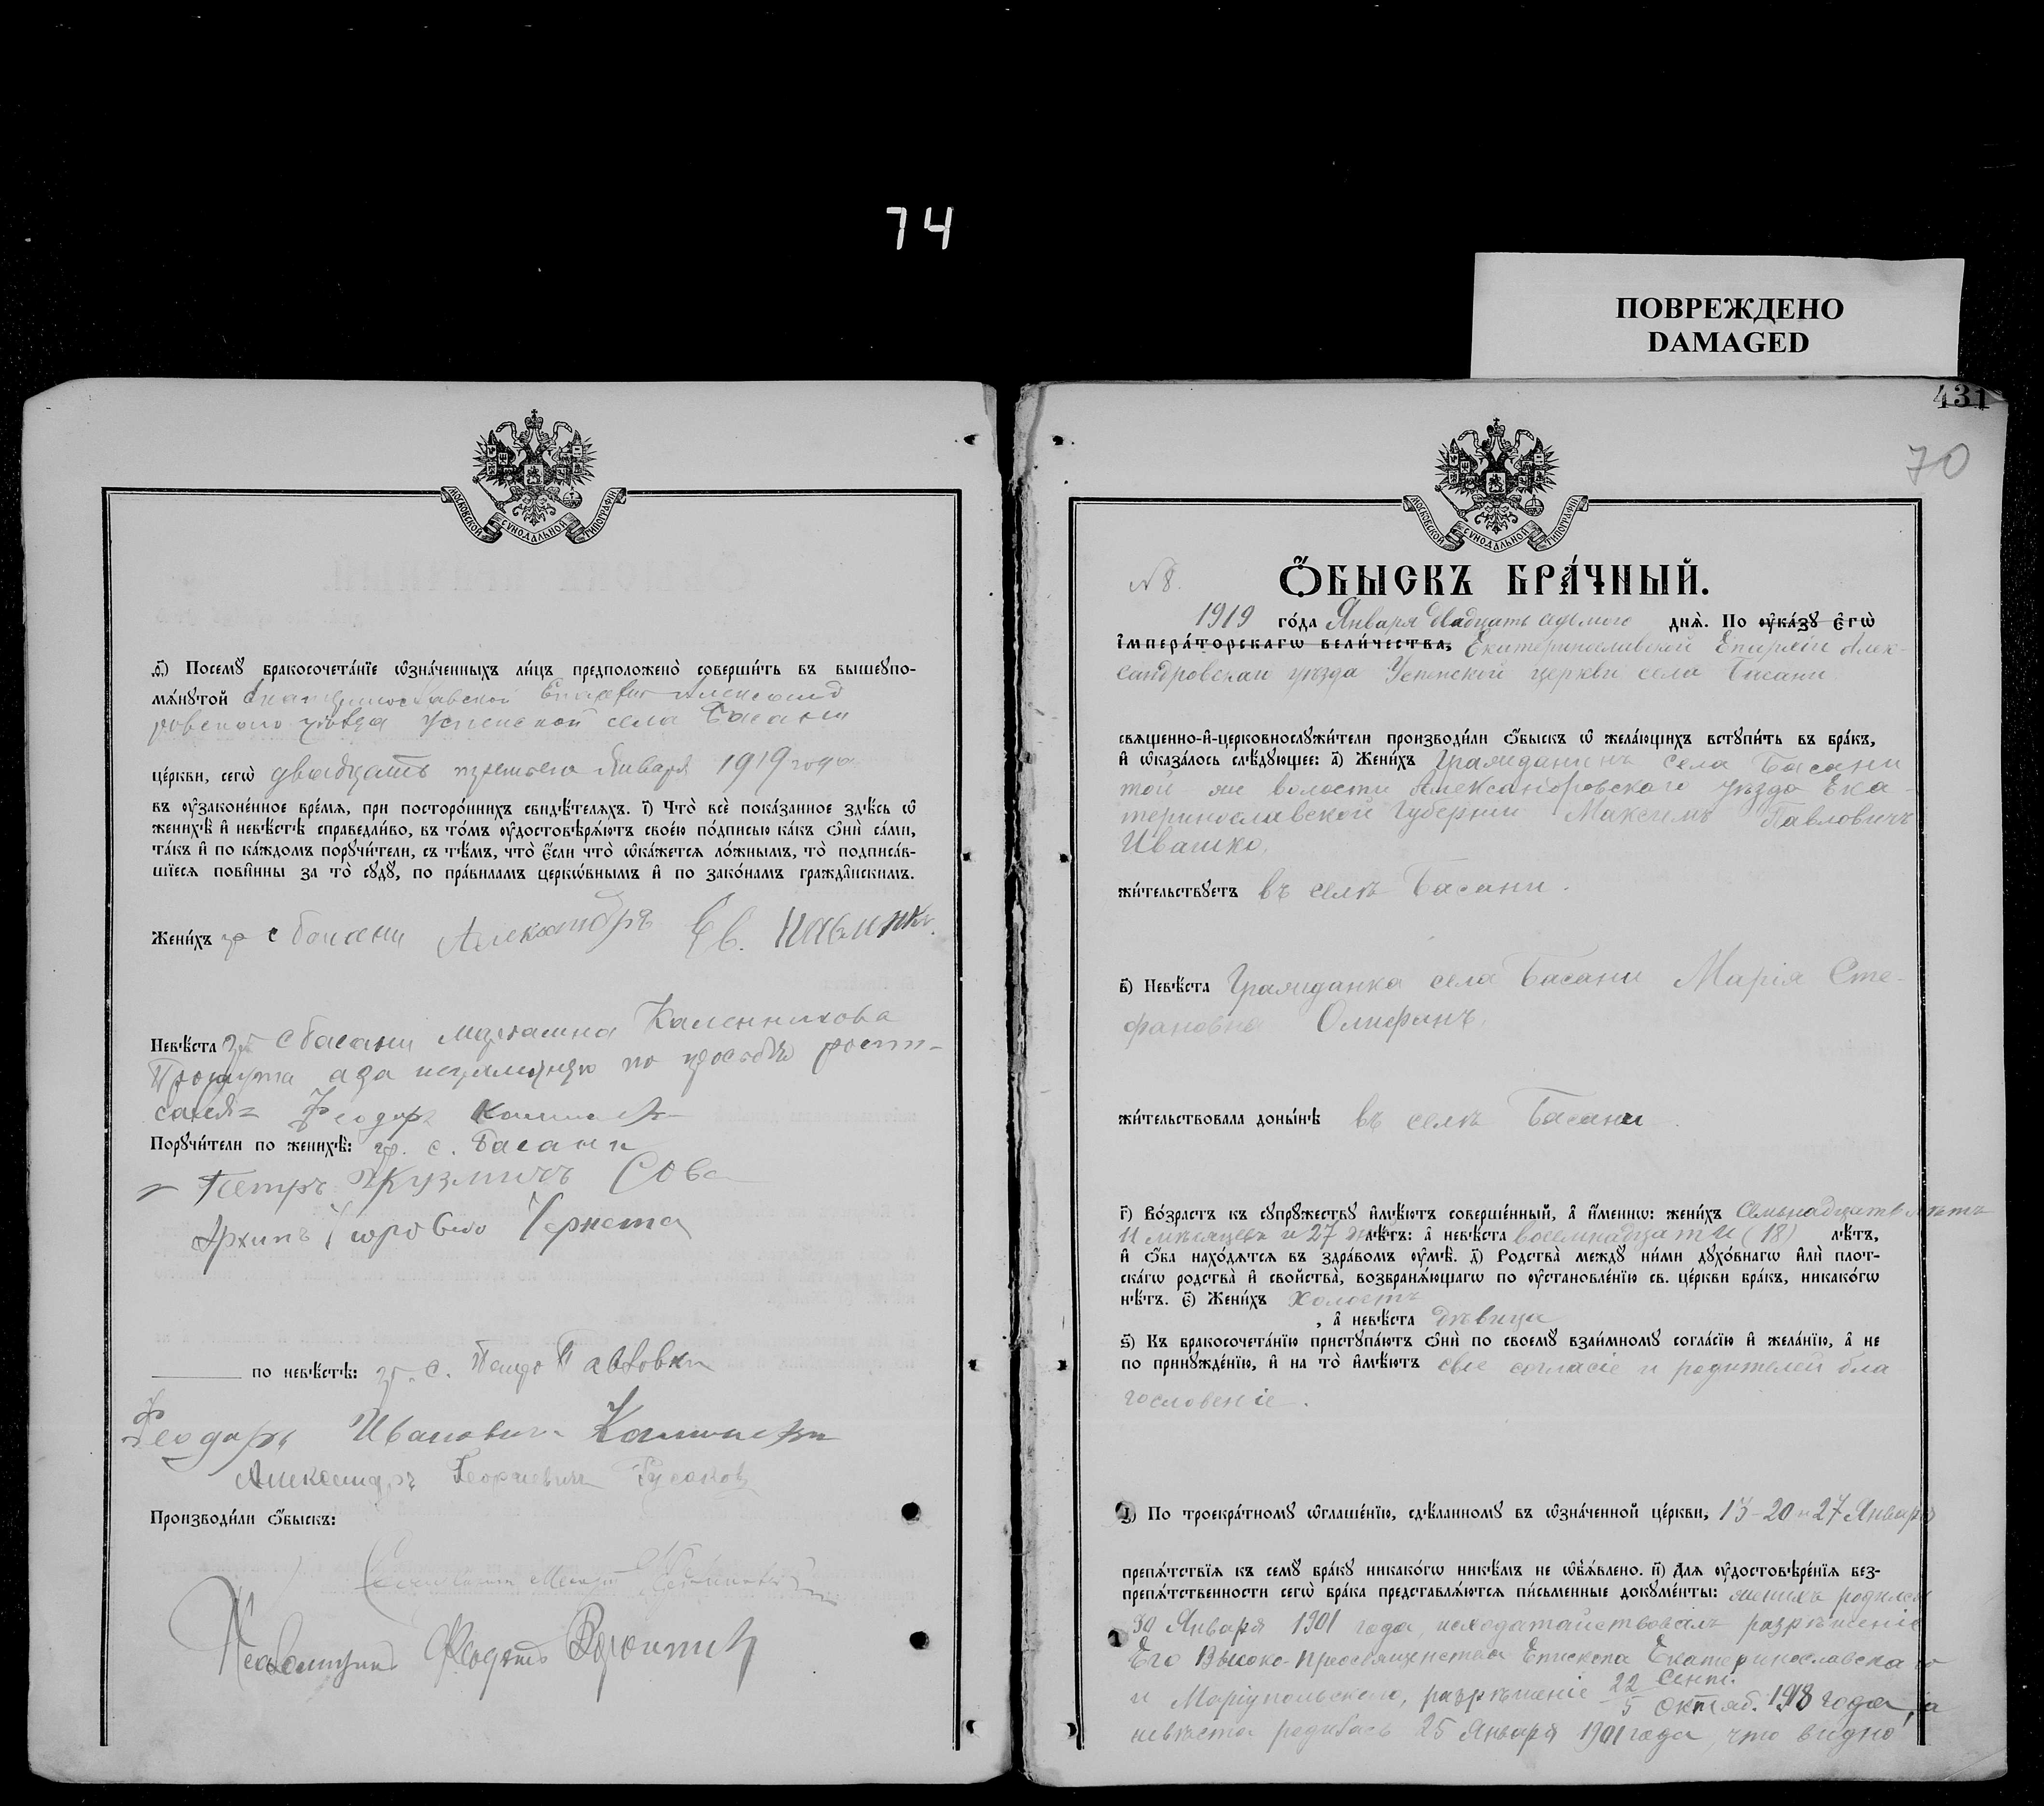 74
ПОВРЕЖДЕНО
DAMAGED
МОСКОВСКОЙ СУНОДАЛЬНОЙ ТИПОГРАФІИ
ѳ҃) Посемꙋ бракосочета́нїе ѡзна́ченныхъ ли́цъ предположено̀ соверши́ть въ вышеꙋпо-
мѧ́нꙋтой Екатеринославской Епархіи Александ
ровскаго уѣзда Успенской села Басани
це́ркви, сегѡ̀ двадцать третьяго Января 1919 года
въ ᲂу҆законе́нное вре́мѧ, при посторо́ннихъ свидѣ́телѧхъ. і҃) Что̀ всѐ пока́занное здѣ́сь ѡ҆
женихѣ̀ и҆ невѣ́стѣ справедли́во, въ то́мъ ᲂу҆достовѣрѧ́ютъ свое́ю по́дписью ка́къ ѻ҆нѝ са́ми,
та́къ и҆ по ка́ждомъ порꙋчи́тели, съ тѣ́мъ, что̀ є҆́сли что̀ ѡ҆ка́жетсѧ ло́жнымъ, то̀ подписа́в-
шїесѧ пови́нны за то̀ сꙋдꙋ̀, по пра́вилам церкѡ́внымъ и҆ по зако́намъ гражда̂нскимъ.
Жени́хъ гр с Басани Александръ Ев.
Невѣ́ста гр с Басани Каленникова
а за неграмотную по просьбѣ росп-
сался Феодоръ
Порꙋчи́тели по женихѣ̀: гр. с. Басани
Петръ Кузмичъ Сова
Архипъ Чернета
по невѣ́стѣ: гр. с. Павловки
Феодоръ Ивановичъ
Александръ Георгіевичъ Гусаковъ
Производи́ли ѻ҆́быскъ:
Псаломщикъ
431
70
МОСКОВСКОЙ СУНОДАЛЬНОЙ ТИПОГРАФІИ
N 8.
Ѻ҆БЫСКЪ БРА́ЧНЫЙ.
1919 го́да Января двадцать седьмого днѧ̀. По ᲂу҆ка́зꙋ є҆гѡ̀
і҆мпера́торскагѡ вели́чества, Екатеринославской Епархіи Алек-
сандровскаго уѣзда Успенской церкви села Басани
свѧщенно-и҆-церковнослꙋжи́тели производи́ли ѻ҆́быскъ ѡ҆ жела́ющихъ встꙋпи́ть въ бра́къ,
и҆ ѡ҆каза́лось слѣ́дꙋющее: а҃) Жени́хъ Гражданинъ села Басани
той же волости Александровскаго уѣзда Ека-
теринославской Губерніи Максимъ Павловичъ
Ивашко.
жи́тельствꙋетъ въ селѣ Басани.
в҃) Невѣ́ста Гражданка села Басани Марія Сте-
фановна Олифанъ.
жи́тельствовала доны́нѣ въ селѣ Басани
г҃) Во́зрастъ къ сꙋпрꙋ́жествꙋ и҆мѣ́ютъ соверше́нный, а҆ и҆́меннѡ: жени́хъ Семьнадцать лѣтъ
11 мѣсяцевъ и 27 дн лѣ́тъ: а҆ невѣ́ста восемнадцати (18) лѣ́тъ,
и҆ ѻ҆́ба нахо́дѧтсѧ въ здра́вомъ ᲂу҆мѣ̀. д҃) Родства̀ междꙋ̀ ни́ми дꙋхо́внагѡ и҆лѝ плот-
ска́гѡ родства̀ и҆ сво́йства̀, возбранѧ́ющагѡ по ᲂу҆становле́нїю св. це́ркви бра́къ, никако́гѡ
нѣ́тъ. є҃) Жени́хъ холостъ
, а҆ невѣ́ста дѣвица
ѕ҃) Къ бракосочета́нїю пристꙋпа́ютъ ѻ҆нѝ по своемꙋ̀ взаи́мномꙋ согла́сїю и҆ жела́нїю, а҆ не
по принꙋжде́нїю, и҆ на то̀ и҆мѣ́ютъ свое согласіе и родителей бла
гословеніе.
з҃) По троекра́тномꙋ ѡ҆глаше́нїю, сдѣ́ланномꙋ въ ѡ҆зна́ченной це́ркви, 13-20 и 27 Января
препѧ́тствїѧ къ семꙋ̀ бра́кꙋ никако́гѡ никѣ́мъ не ѡ҆б̾ѧ́влено. и҃) Длѧ ᲂу҆достовѣре́нїѧ без-
препѧ́тственности сегѡ̀ бра́ка представлѧ́ютсѧ пи́сьменные докꙋме́нты: женихъ родился
30 Января 1901 года, исходатайствовалъ разрѣшеніе
Его Высоко-Преосвященства Епископа Екатеринославска го
и Маріупольскаго, разрѣшеніе 22 Сент. / 5 Октяб. 1918 года, а
невѣста родилась 25 Января 1901 года, что видно